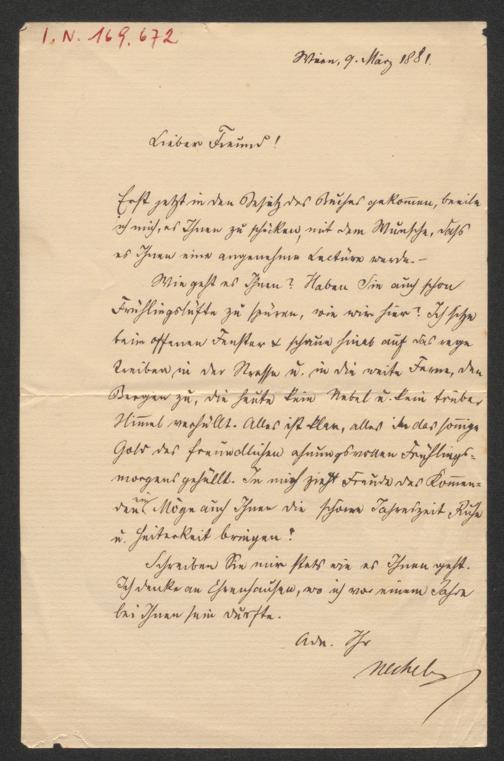 I. N. 169.672
Wien, 9. März 1881.
Lieber Freund!
Erst jetzt in den Besitz des Buches gekommen, beeile
ich mich, es Ihnen zu schicken, mit dem Wunsche, daß
es Ihnen eine angenehme Lectüre werde. –
Wie geht es Ihnen? Haben Sie auch schon
Frühlingslüfte zu spüren, wie wir hier? Ich sitze
beim offenen Fenster & schaue hinab auf das rege
Treiben in der Strasse u. in die weite Ferne, den
Bergen zu, die heute kein Nebel u. kein trüber
Himmel verhüllt. Alles ist klar, alles in das sonnige
Gold des freundlichen ahnungsvollen Frühlings-
morgens gehüllt. In mich zieht Freude des Kommen-
den ein. Möge auch Ihnen die schöne Jahreszeit Ruhe
u. Heiterkeit bringen!
Schreiben Sie mir stets wie es Ihnen geht.
Ich denke an Ehrenhausen, wo ich vor einem Jahre
bei Ihnen sein durfte.
Ihr